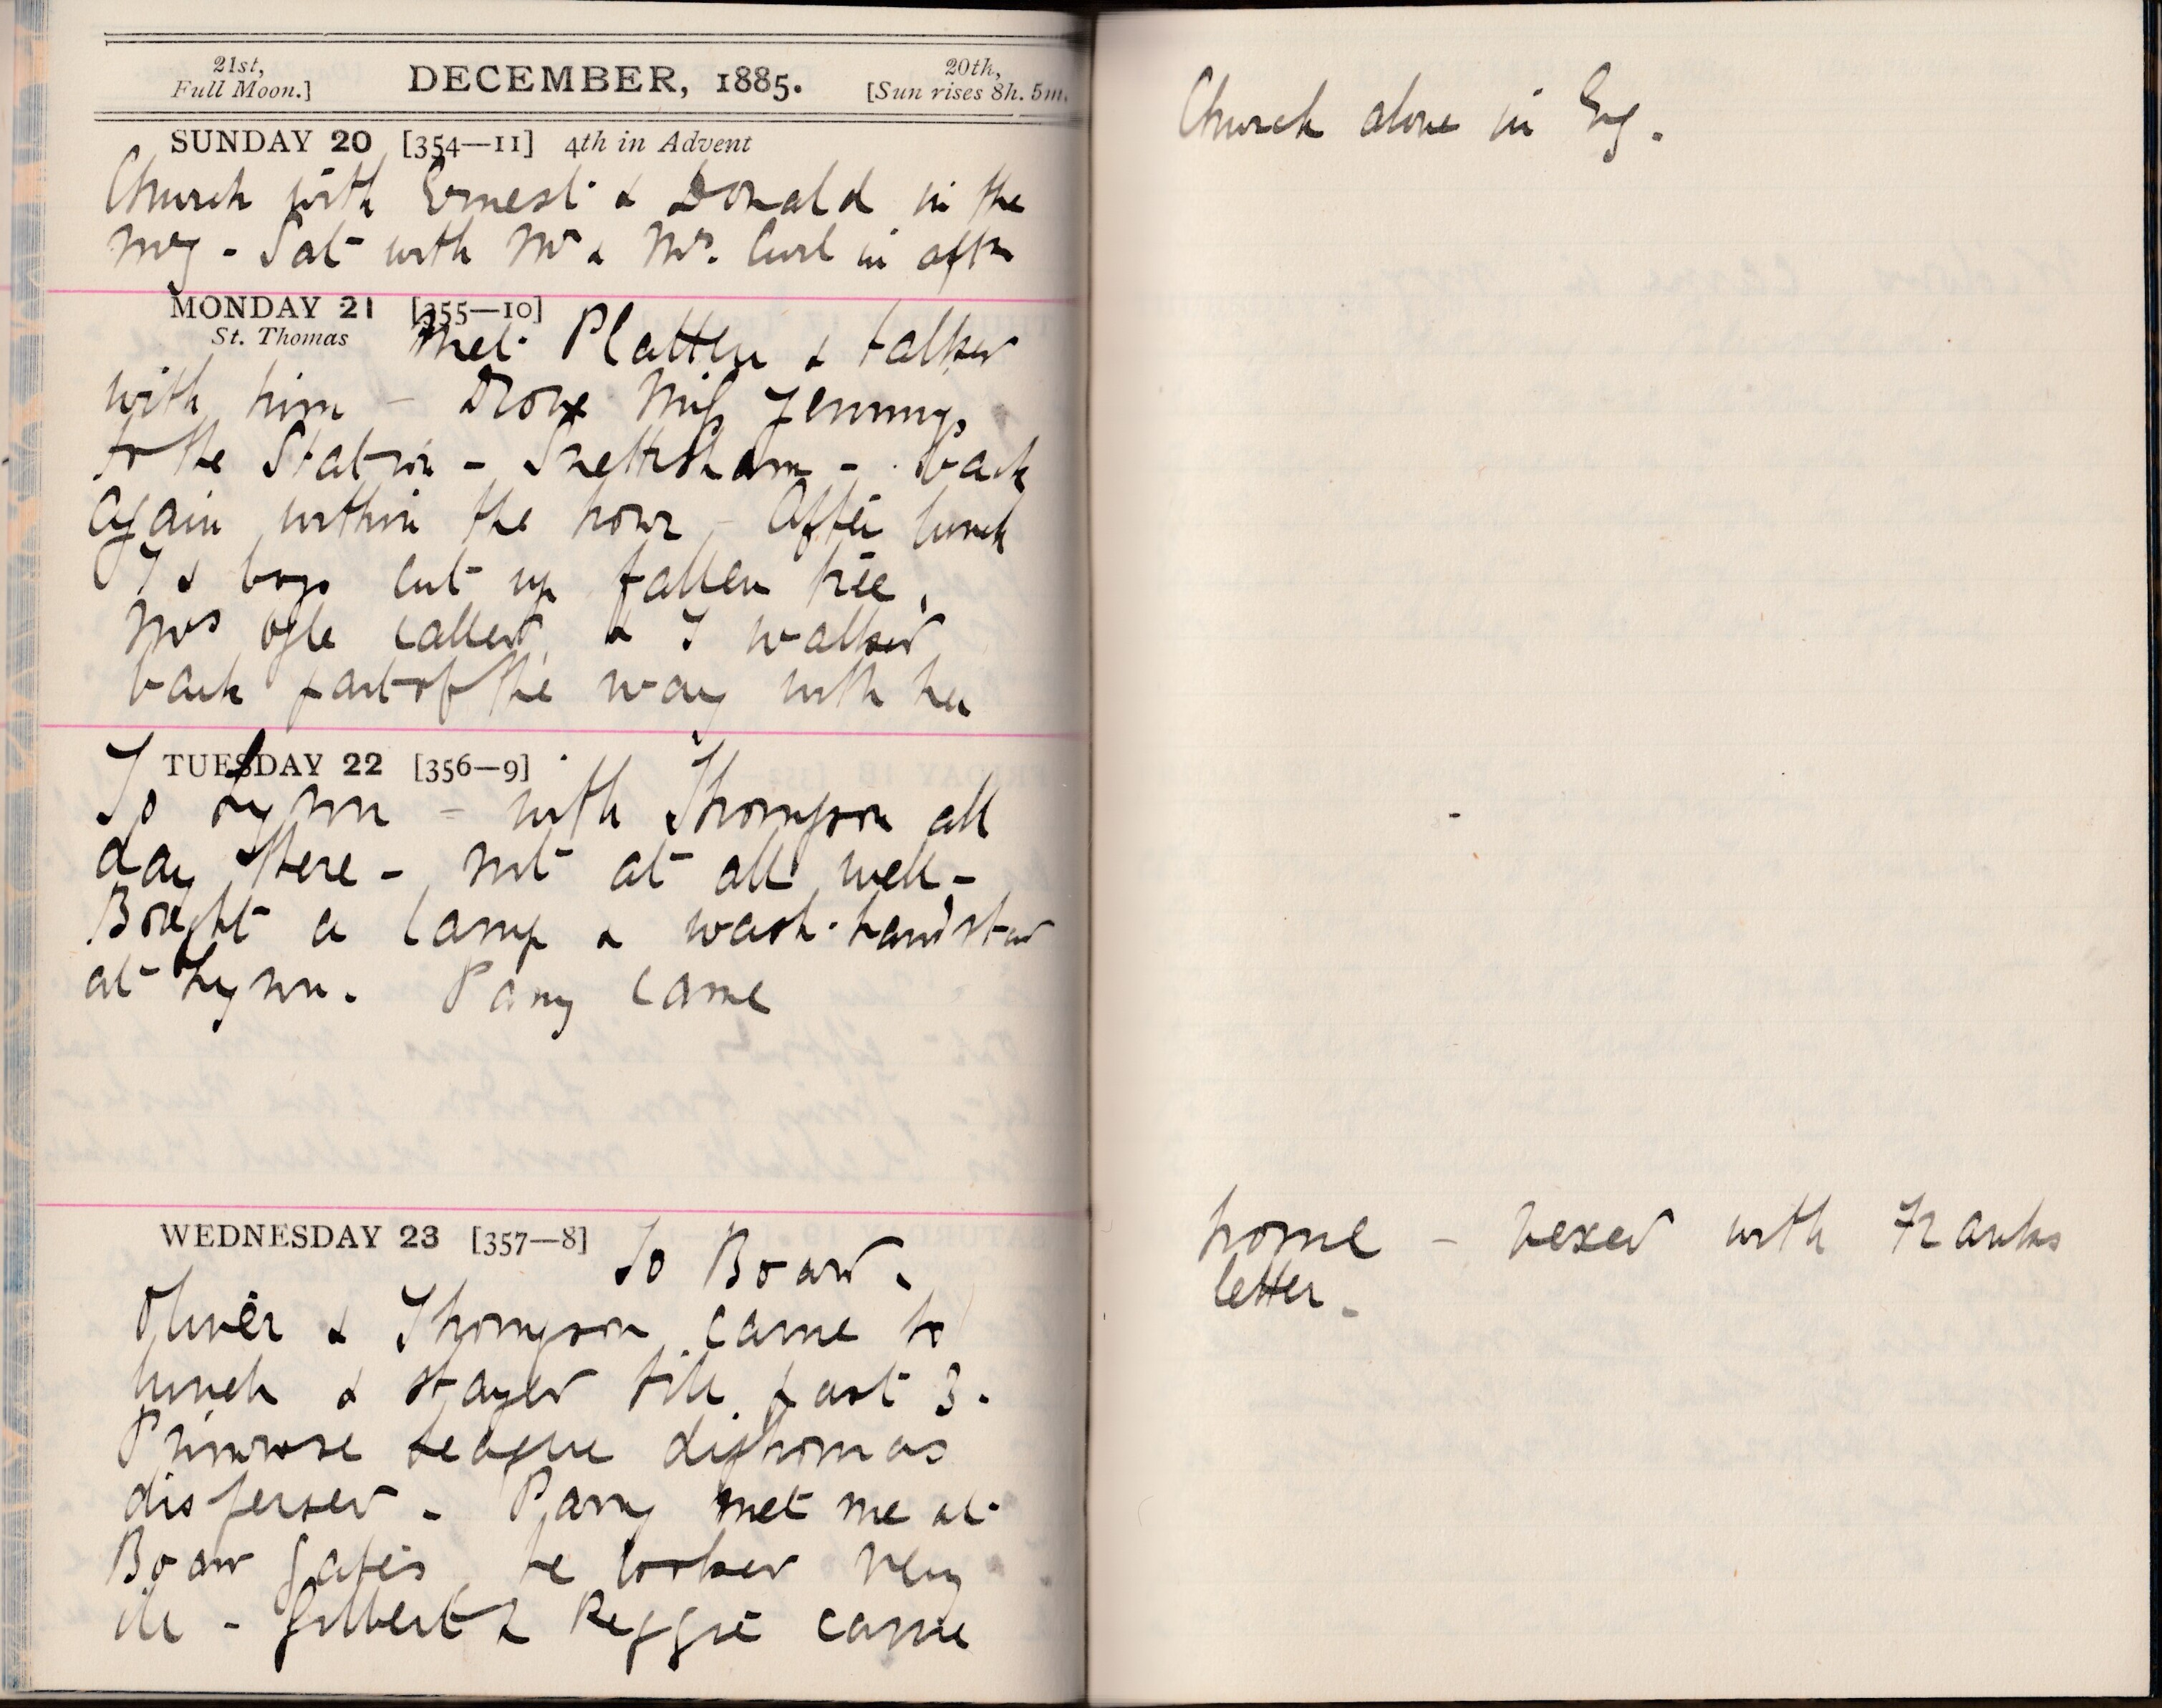 21st,
Full Moon.]
DECEMBER, 1885.
20th,
[Sun rises 8h. 5m.
SUNDAY 20 [354—11] 4th in Advent
Church with Ernest & Donald in the
mg - Sat with Mr & Mrs. Curl in aftn
MONDAY 21 [355—10]
St. Thomas Met Platten & talked
with him - Drove Miss Jennings
to the Station - Snettisham - back
again within the hour - After lunch
I & boys cut up fallen tree,
Mrs Ogle called, & I walked
back part of the way with her
TUESDAY 22 [356—9]
To Lynn - with Thompson all
day there - not at all well -
Bought a lamp & wash-handstand
at Lynn. Parry came
WEDNESDAY 23 [357—8] To Board.
Oliver & Thompson came to
lunch & stayed till past 3.
Primrose League diplomas
dispersed - Parry met me at
Board gates, he looked very
ill - Gilbert & Reggie came
Church alone in Evg.
home - vexed with Franks
letter -